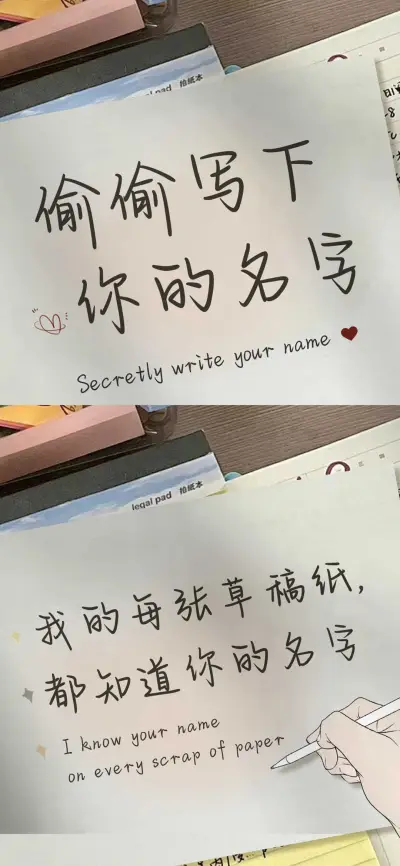 legal pad 拍纸本
偷偷写下
你的名字
Secretly write your name
legal pad 拍纸本
我的每张草稿纸,
都知道你的名字
I know your name
on every scrap of paper